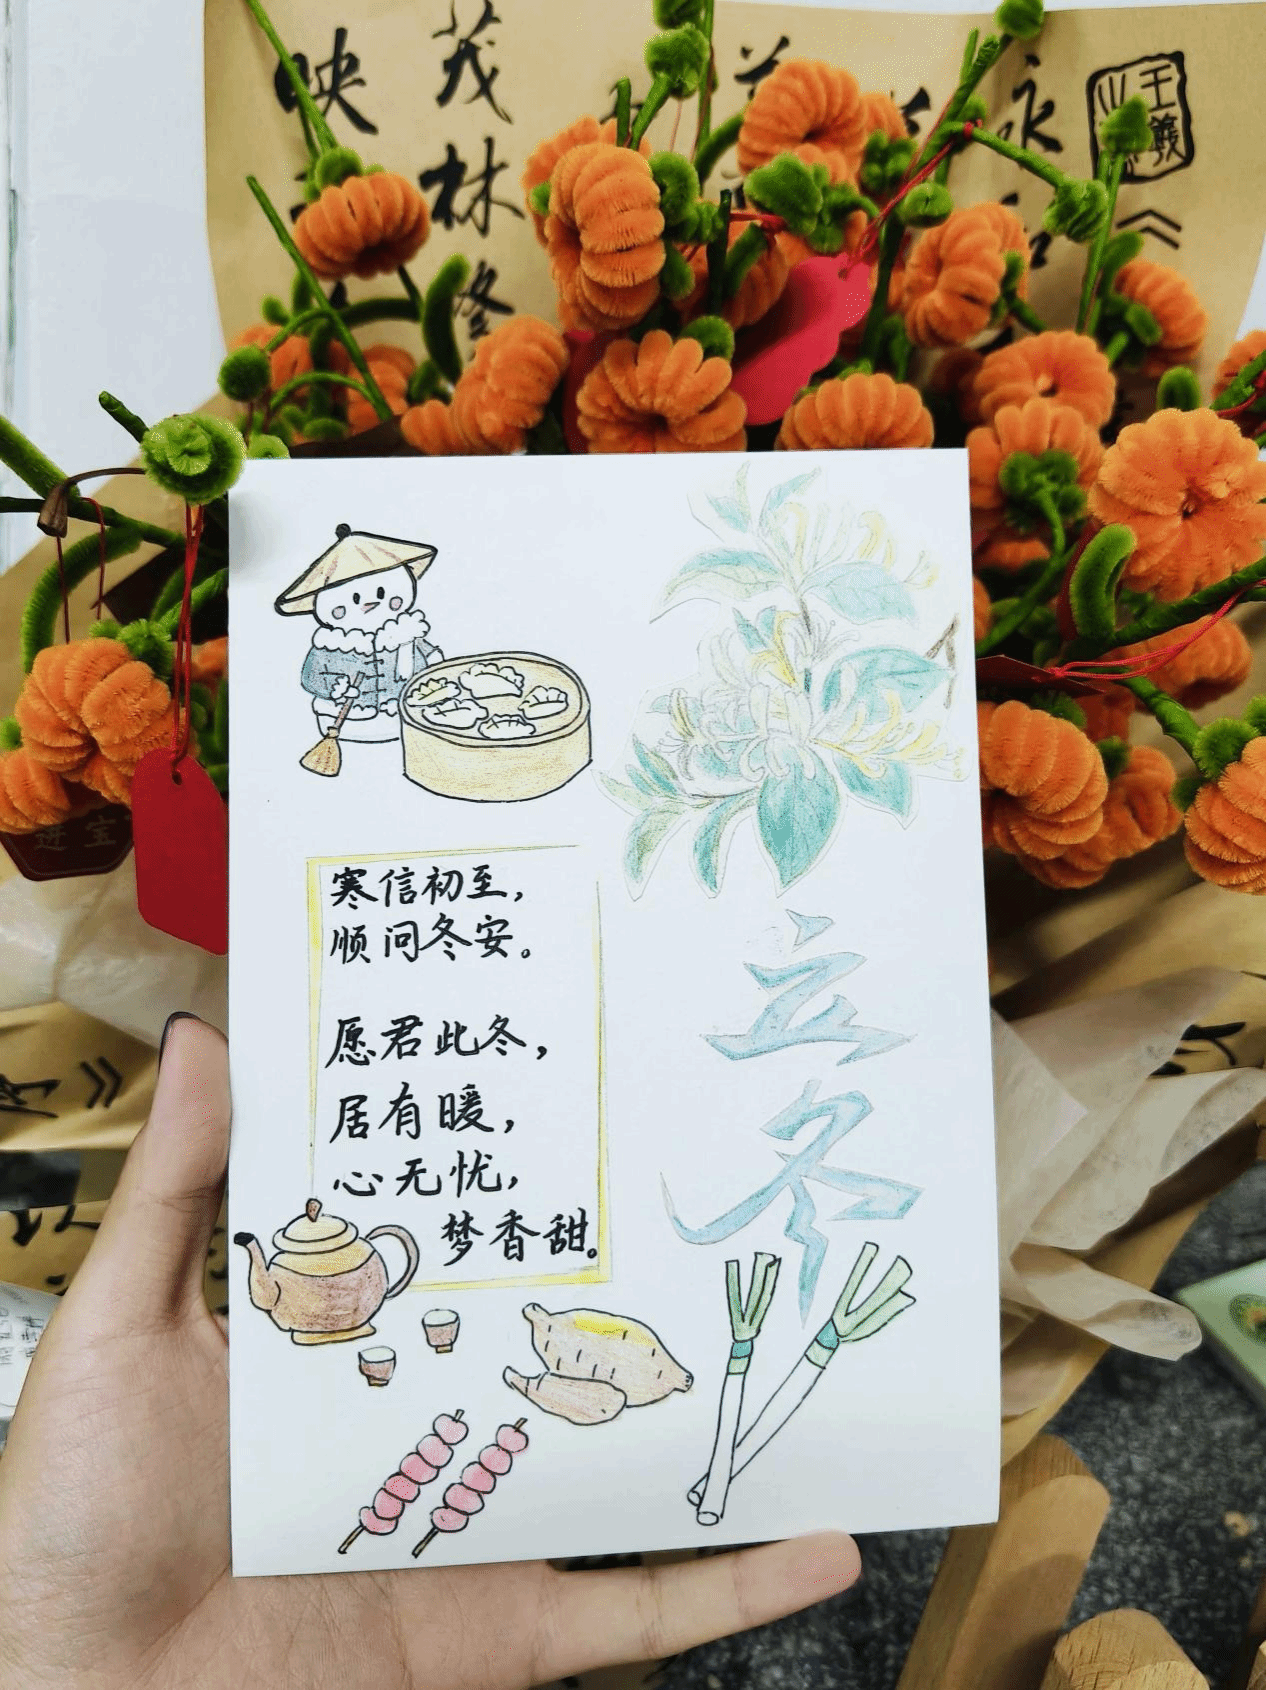 寒信初至，
顺问冬安。
愿君此冬，
居有暖，
心无忧，
梦香甜。
立冬
茂林
映
永
王羲
进宝